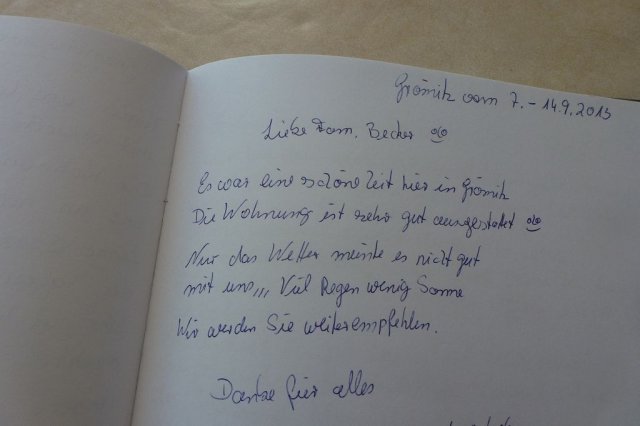 Grömitz vom 7. - 14.9.2013
Liebe Fam. Becher
Es war eine schöne Zeit hier in Grömitz
Die Wohnung ist sehr gut ausgestattet
Nur das Wetter meinte es nicht gut
mit uns,,, Viel Regen wenig Sonne
Wir werden Sie weiterempfehlen.
Danke für alles